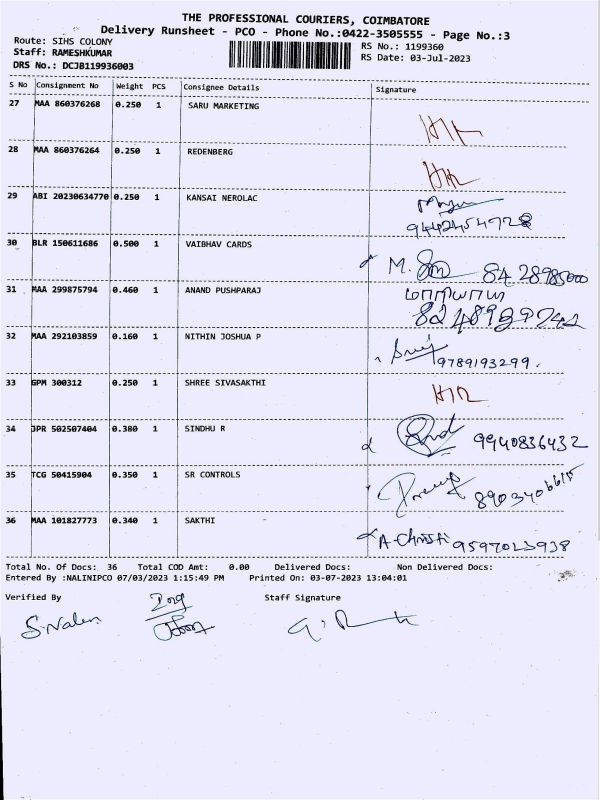 THE PROFESSIONAL COURIERS, COIMBATORE
Delivery Runsheet - PCO - Phone No.:0422-3505555 - Page No.:3
Route: SIHS COLONY
RS No.: 1199360
Staff: RAMESHKUMAR
RS Date: 03-Jul-2023
DRS No.: DCJB119936003
S No Consignment No Weight PCS Consignee Details Signature
27 MAA 860376268 0.250 1 SARU MARKETING
28 MAA 860376264 0.250 1 REDENBERG
29 ABI 20230634770 0.250 1 KANSAI NEROLAC
9442454728
30 BLR 150611686 0.500 1 VAIBHAV CARDS
M.
31 MAA 299875794 0.460 1 ANAND PUSHPARAJ
32 MAA 292103859 0.160 1 NITHIN JOSHUA P
9789193299.
33 GPM 300312 0.250 1 SHREE SIVASAKTHI
34 JPR 502507404 0.380 1 SINDHU R
9940836432
35 TCG 50415904 0.350 1 SR CONTROLS
36 MAA 101827773 0.340 1 SAKTHI
A-Christi 9597023938
Total No. Of Docs: 36 Total COD Amt: 0.00 Delivered Docs: Non Delivered Docs:
Entered By :NALINIPCO 07/03/2023 1:15:49 PM Printed On: 03-07-2023 13:04:01
Verified By Staff Signature
S.Nalen